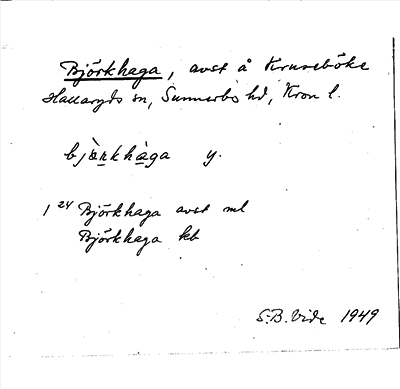 Björkhaga, avst å Kruseböke
Hallaryds sn, Sunnerbo hd, Kron l.
bjær̲khàga y.
1 24 Björkhaga avst ml
Björkhaga kb
S.B. Vide 1949